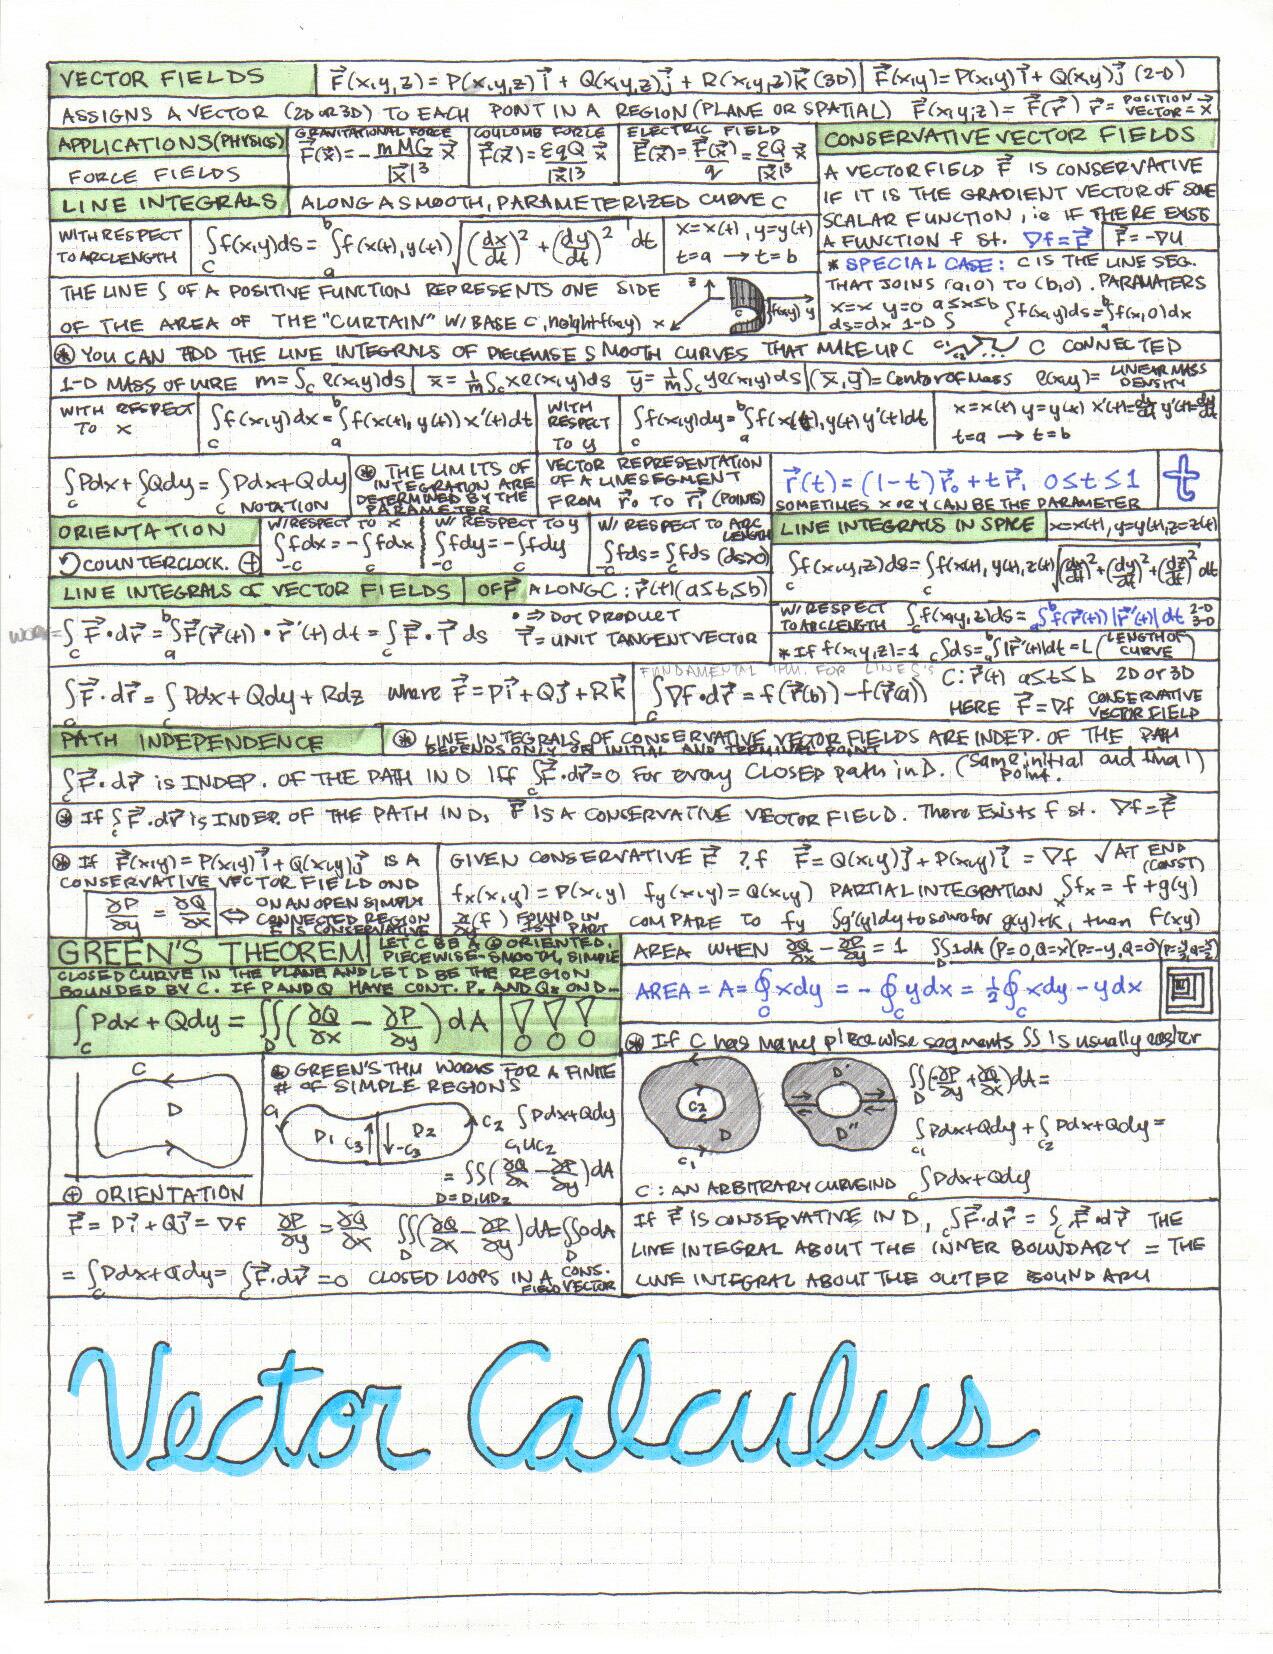 VECTOR FIELDS
F⃗(x,y,z) = P(x,y,z) i⃗ + Q(x,y,z) j⃗ + R(x,y,z) k⃗ (3D)
F⃗(x,y) = P(x,y) i⃗ + Q(x,y) j⃗ (2-D)
ASSIGNS A VECTOR (2D OR 3D) TO EACH POINT IN A REGION (PLANE OR SPATIAL) F⃗(x,y,z) = F⃗(r⃗) r⃗ = POSITION VECTOR = x⃗
APPLICATIONS (PHYSICS)
FORCE FIELDS
GRAVITATIONAL FORCE
F⃗(x⃗) = -mMG/|x⃗|³ x⃗
COULOMB FORCE
F⃗(x⃗) = εqQ/|x⃗|³ x⃗
ELECTRIC FIELD
E⃗(x⃗) = F⃗(x⃗)/q = εQ/|x⃗|³ x⃗
CONSERVATIVE VECTOR FIELDS
A VECTOR FIELD F⃗ IS CONSERVATIVE
IF IT IS THE GRADIENT VECTOR OF SOME
SCALAR FUNCTION, ie IF THERE EXISTS
A FUNCTION f st. ∇f = F⃗
F⃗ = -∇U
LINE INTEGRALS
ALONG A SMOOTH, PARAMETERIZED CURVE C
WITH RESPECT
TO ARCLENGTH
∫_C f(x,y)ds = ∫_a^b f(x(t), y(t)) √((dx/dt)² + (dy/dt)²) dt
x = x(t), y = y(t)
t=a → t=b
* SPECIAL CASE: C IS THE LINE SEG.
THAT JOINS (a,0) TO (b,0). PARAMATERS
x=x y=0 a≤x≤b ∫_C f(x,y)ds = ∫_a^b f(x,0)dx
ds=dx 1-D ∫
THE LINE ∫ OF A POSITIVE FUNCTION REPRESENTS ONE SIDE
OF THE AREA OF THE "CURTAIN" W/ BASE C, height f(x,y)
z x y C f(x,y)
⊛ YOU CAN ADD THE LINE INTEGRALS OF PIECEWISE SMOOTH CURVES THAT MAKE UP C C₁ C₂ ... C CONNECTED
1-D MASS OF WIRE m = ∫_C ρ(x,y)ds
x̄ = 1/m ∫_C xρ(x,y)ds ȳ = 1/m ∫_C yρ(x,y)ds
(x̄, ȳ) = Center of Mass ρ(x,y) = LINEAR MASS DENSITY
WITH RESPECT
TO x
∫_C f(x,y)dx = ∫_a^b f(x(t), y(t)) x'(t)dt
WITH
RESPECT
TO y
∫_C f(x,y)dy = ∫_a^b f(x(t), y(t) y'(t)dt
x=x(t) y=y(t) x'(t)=dx/dt y'(t)=dy/dt
t=a → t=b
∫_C Pdx + ∫_C Qdy = ∫_C Pdx + Qdy
NOTATION
⊛ THE LIMITS OF
INTEGRATION ARE
DETERMINED BY THE
PARAMETER
VECTOR REPRESENTATION
OF A LINE SEGMENT
FROM r⃗₀ TO r⃗₁ (POINTS)
r⃗(t) = (1-t) r⃗₀ + t r⃗₁ 0≤t≤1
SOMETIMES x OR y CAN BE THE PARAMETER
t
ORIENTATION
COUNTERCLOCK. ⊕
W/ RESPECT TO x
∫_-C fdx = -∫_C fdx
W/ RESPECT TO y
∫_-C fdy = -∫_C fdy
W/ RESPECT TO ARC
LENGTH
∫_-C fds = ∫_C fds (ds>0)
LINE INTEGRALS IN SPACE
x=x(t), y=y(t), z=z(t)
∫_C f(x,y,z)ds = ∫ f(x(t), y(t), z(t)) √((dx/dt)² + (dy/dt)² + (dz/dt)²) dt
LINE INTEGRALS OF VECTOR FIELDS
OF F⃗ ALONG C: r⃗(t) (a≤t≤b)
WORK = ∫_C F⃗·dr⃗ = ∫_a^b F⃗(r⃗(t))·r⃗'(t)dt = ∫_C F⃗·T⃗ ds
• ⇒ DOT PRODUCT
T⃗ = UNIT TANGENT VECTOR
W/ RESPECT
TO ARCLENGTH
∫_C f(x,y,z)ds = ∫_a^b f(r⃗(t)) |r⃗'(t)| dt 2-D 3-D
* If f(x,y,z)=1 ∫_C ds = ∫_a^b |r⃗'(t)|dt = L (LENGTH OF CURVE
∫_C F⃗·dr⃗ = ∫_C Pdx + Qdy + Rdz where F⃗ = Pi⃗ + Qj⃗ + Rk⃗
FUNDAMENTAL THM. FOR LINE ∫'s
∫_C ∇f·dr⃗ = f(r⃗(b)) - f(r⃗(a))
C: r⃗(t) a≤t≤b 2D OR 3D
HERE F⃗ = ∇f CONSERVATIVE
VECTOR FIELD
PATH INDEPENDENCE
⊛ LINE INTEGRALS OF CONSERVATIVE VECTOR FIELDS ARE INDEP. OF THE PATH
DEPENDS ONLY ON INITIAL AND TERMINAL POINT
∫_C F⃗·dr⃗ is INDEP. OF THE PATH IN D Iff ∫_C F⃗·dr⃗ = 0 For every CLOSED path in D. (same initial and final point.)
⊛ If ∫_C F⃗·dr⃗ is INDEP. OF THE PATH IN D, F⃗ IS A CONSERVATIVE VECTOR FIELD. There Exists f st. ∇f = F⃗
⊛ If F⃗(x,y) = P(x,y)i⃗ + Q(x,y)j⃗ IS A
CONSERVATIVE VECTOR FIELD ON D
∂P/∂y = ∂Q/∂x ⇔
ON AN OPEN SIMPLY
CONNECTED REGION
F⃗ IS CONSERVATIVE
GIVEN CONSERVATIVE F⃗ ? f F⃗ = Q(x,y)j⃗ + P(x,y)i⃗ = ∇f √ AT END (CONST)
f_x(x,y) = P(x,y) f_y(x,y) = Q(x,y) PARTIAL INTEGRATION ∫_x f_x = f + g(y)
∂/∂y (f) FOUND IN 1ST PART COMPARE TO f_y ∫g'(y)dy to solve for g(y)+K, then f(x,y)
GREEN'S THEOREM
LET C BE A ⊕ ORIENTED,
PIECEWISE-SMOOTH, SIMPLE
CLOSED CURVE IN THE PLANE AND LET D BE THE REGION
BOUNDED BY C. IF P AND Q HAVE CONT. P_x AND Q_x ON D→
∫_C Pdx + Qdy = ∬_D (∂Q/∂x - ∂P/∂y) dA
! ! !
AREA WHEN ∂Q/∂x - ∂P/∂y = 1 ∬_D 1dA (P=0,Q=x) (P=-y,Q=0) (P=-y/2, Q=x/2)
AREA = A = ∮_C xdy = -∮_C ydx = 1/2 ∮_C xdy - ydx
⊛ If C has many piecewise segments ∬ is usually easier
C
D
⊕ ORIENTATION
⊛ GREEN'S THM WORKS FOR A FINITE
# OF SIMPLE REGIONS
C₁ D₁ C₃ -C₃ D₂ C₂ ∫_C₁∪C₂ Pdx+Qdy
= ∬_D=D₁∪D₂ (∂Q/∂x - ∂P/∂y)dA
C₂ D C₁
D' D''
∬_D (-∂P/∂y + ∂Q/∂x)dA =
∫_C₁ Pdx+Qdy + ∫_C₂ Pdx+Qdy =
C: AN ARBITRARY CURVE IN D ∫_C Pdx+Qdy
F⃗ = Pi⃗ + Qj⃗ = ∇f ∂P/∂y = ∂Q/∂x ∬_D (∂Q/∂x - ∂P/∂y)dA = ∬_D 0dA
= ∫_C Pdx+Qdy = ∫_C F⃗·dr⃗ = 0 CLOSED LOOPS IN A CONS. VECTOR FIELD
If F⃗ IS CONSERVATIVE IN D, ∫_C F⃗·dr⃗ = ∫_C F⃗·dr⃗ THE
LINE INTEGRAL ABOUT THE INNER BOUNDARY = THE
LINE INTEGRAL ABOUT THE OUTER BOUNDARY
Vector Calculus